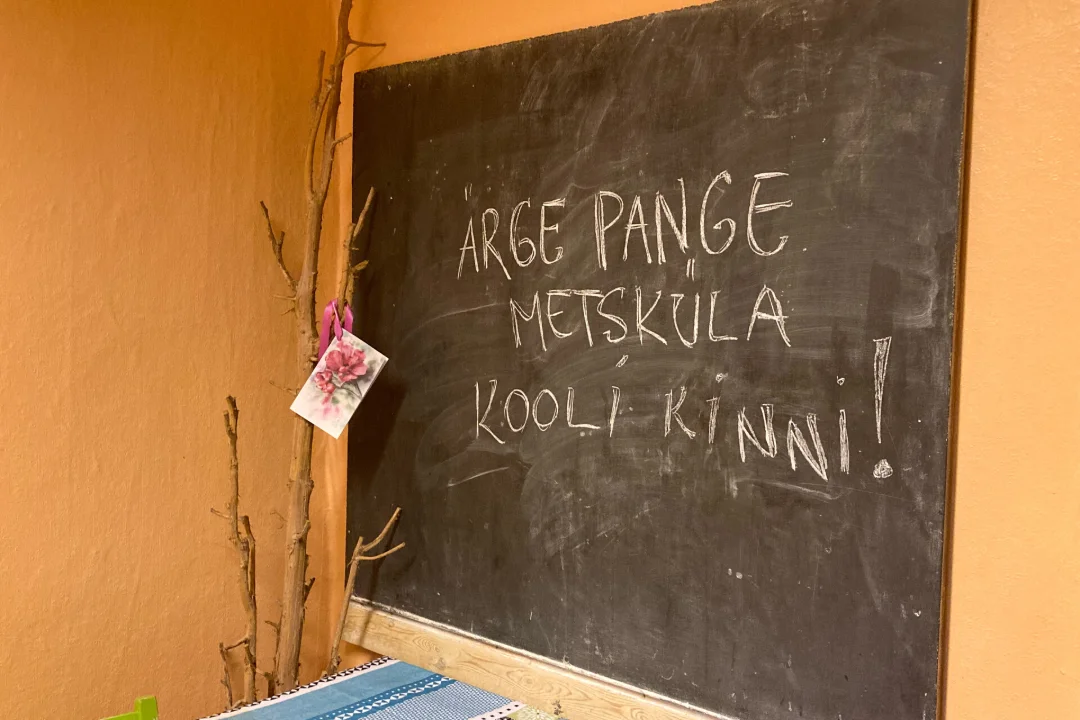 ÄRGE PANGE
METSKÜLA
KOOLI KINNI!